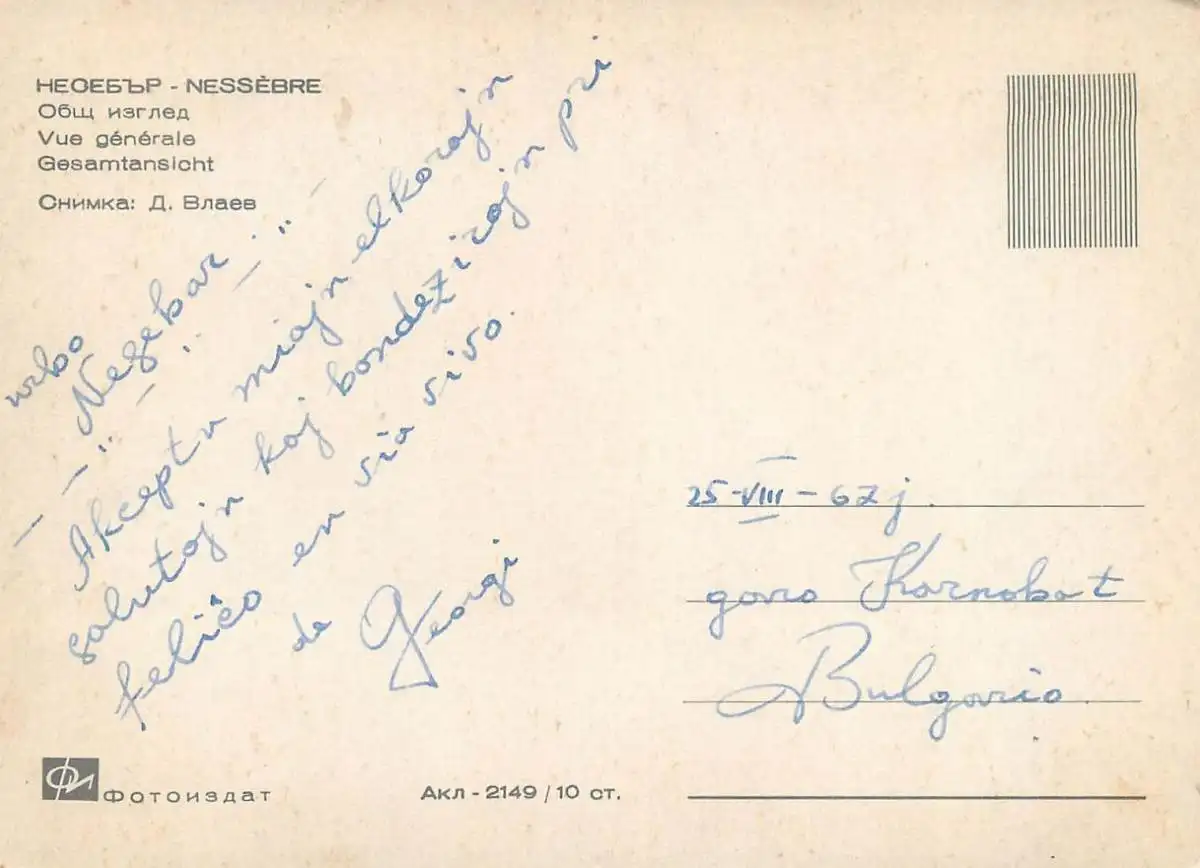 НЕСЕБЪР - NESSÈBRE
Общ изглед
Vue générale
Gesamtansicht
Снимка: Д. Влаев
urbo
— " Nesebar " —
Akceptu miajn elkorajn
salutojn kaj bondezirojn pri
feliĉo en via vivo.
de Georgi
25-VIII-67 j.
gara Karnobat
Bulgario
Фотоиздат
Акл - 2149 / 10 ст.